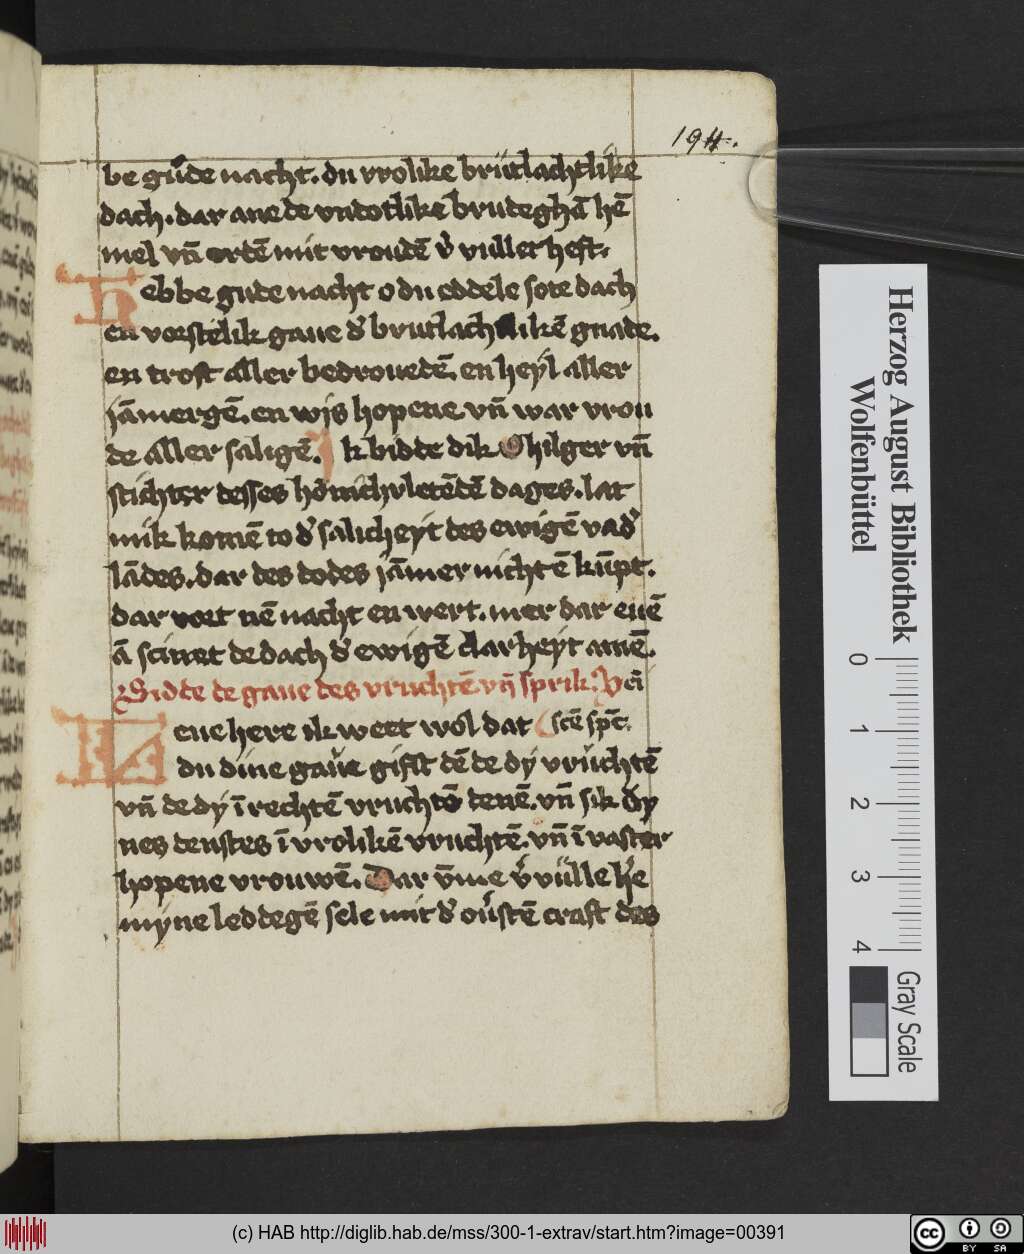 194.
be gůde nacht. du vrolike brütlachtlike
dach. dar ane de vndotlike brudeghā hē
mel vn̄ erdē mit vroudē v̓ vullet heft.
Hebbe gude nacht o du eddele sote dach
en vorstelik gaue d̓ brutlachtlikē gnade.
en trost aller bedrouedē. en heyl aller
jāmergē. en wys hopene vn̄ war vrou
de aller saligē. Ik bidde dik O hilger vn̄
stichter desses honichvletēdē dages. lat
mik komē to d̓ salicheyt des ewigē vad̓
lādes. dar des dodes jāmer nicht ē kūpt.
dar vort nē nacht en wert. mer dar euē
ā scinet de dach d̓ ewigē clarheyt amē.
Bidde de gaue des vruchtē vn̄ sprik. Vēi
Leue here ik weet wol dat scē spc̄.
du dine gaůe gifst dē de dy vrůchtē
vn̄ de dy ī rechtē vruchtē denē. vn̄ sik dy
nes denstes ī vrolikē vruchtē. vn̄ ī vaster
hopene vrouwē. Dar v̄me v̓vülle h̓e
myne leddegē sele mit d̓ ou̓stē craft des
Herzog August Bibliothek
Wolfenbüttel
0 1 2 3 4
Gray Scale
(c) HAB http://diglib.hab.de/mss/300-1-extrav/start.htm?image=00391
cc BY SA